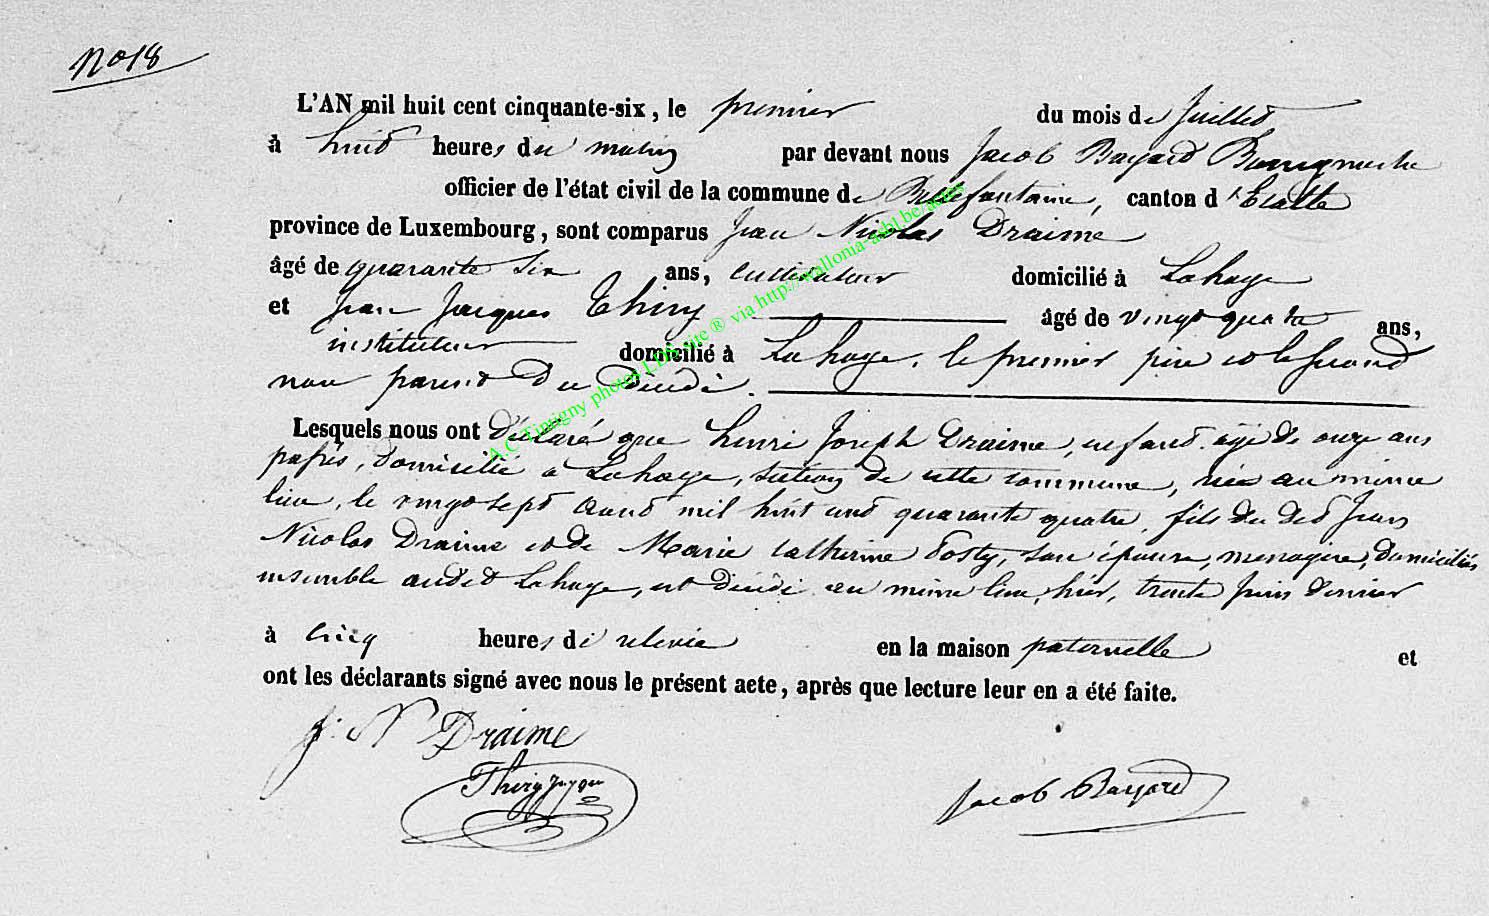 No 18
L'AN mil huit cent cinquante-six, le premier du mois de Juillet
à huit heures du matin par devant nous Jacob Bayard Bourgmestre
officier de l'état civil de la commune de Bellefontaine, canton d'Etalle
province de Luxembourg, sont comparus Jean Nicolas Draime
âgé de quarante six ans, cultivateur domicilié à Lahage
et Jean Jacques Thiry âgé de vingt quatre ans,
instituteur domicilié à Lahage, le premier père et le second
non parent du décédé.
Lesquels nous ont déclaré que Henri Joseph Draime, enfant âgé de onze ans
passés, domicilié à Lahage, section de cette commune, née au même
lieu, le vingt sept août mil huit cent quarante quatre, fils du dit Jean
Nicolas Draime et de Marie Catherine Posty, son épouse, ménagère, domiciliés
ensemble audit Lahage, est décédé au même lieu, hier, trente Juin dernier
à cinq heures de relevée en la maison paternelle et
ont les déclarants signé avec nous le présent acte, après que lecture leur en a été faite.
J. N Draime
Thiry Jacques
Jacob Bayard
A.C. Tintigny photos L.D. site ® via http://wallonia-asbl.be/actes